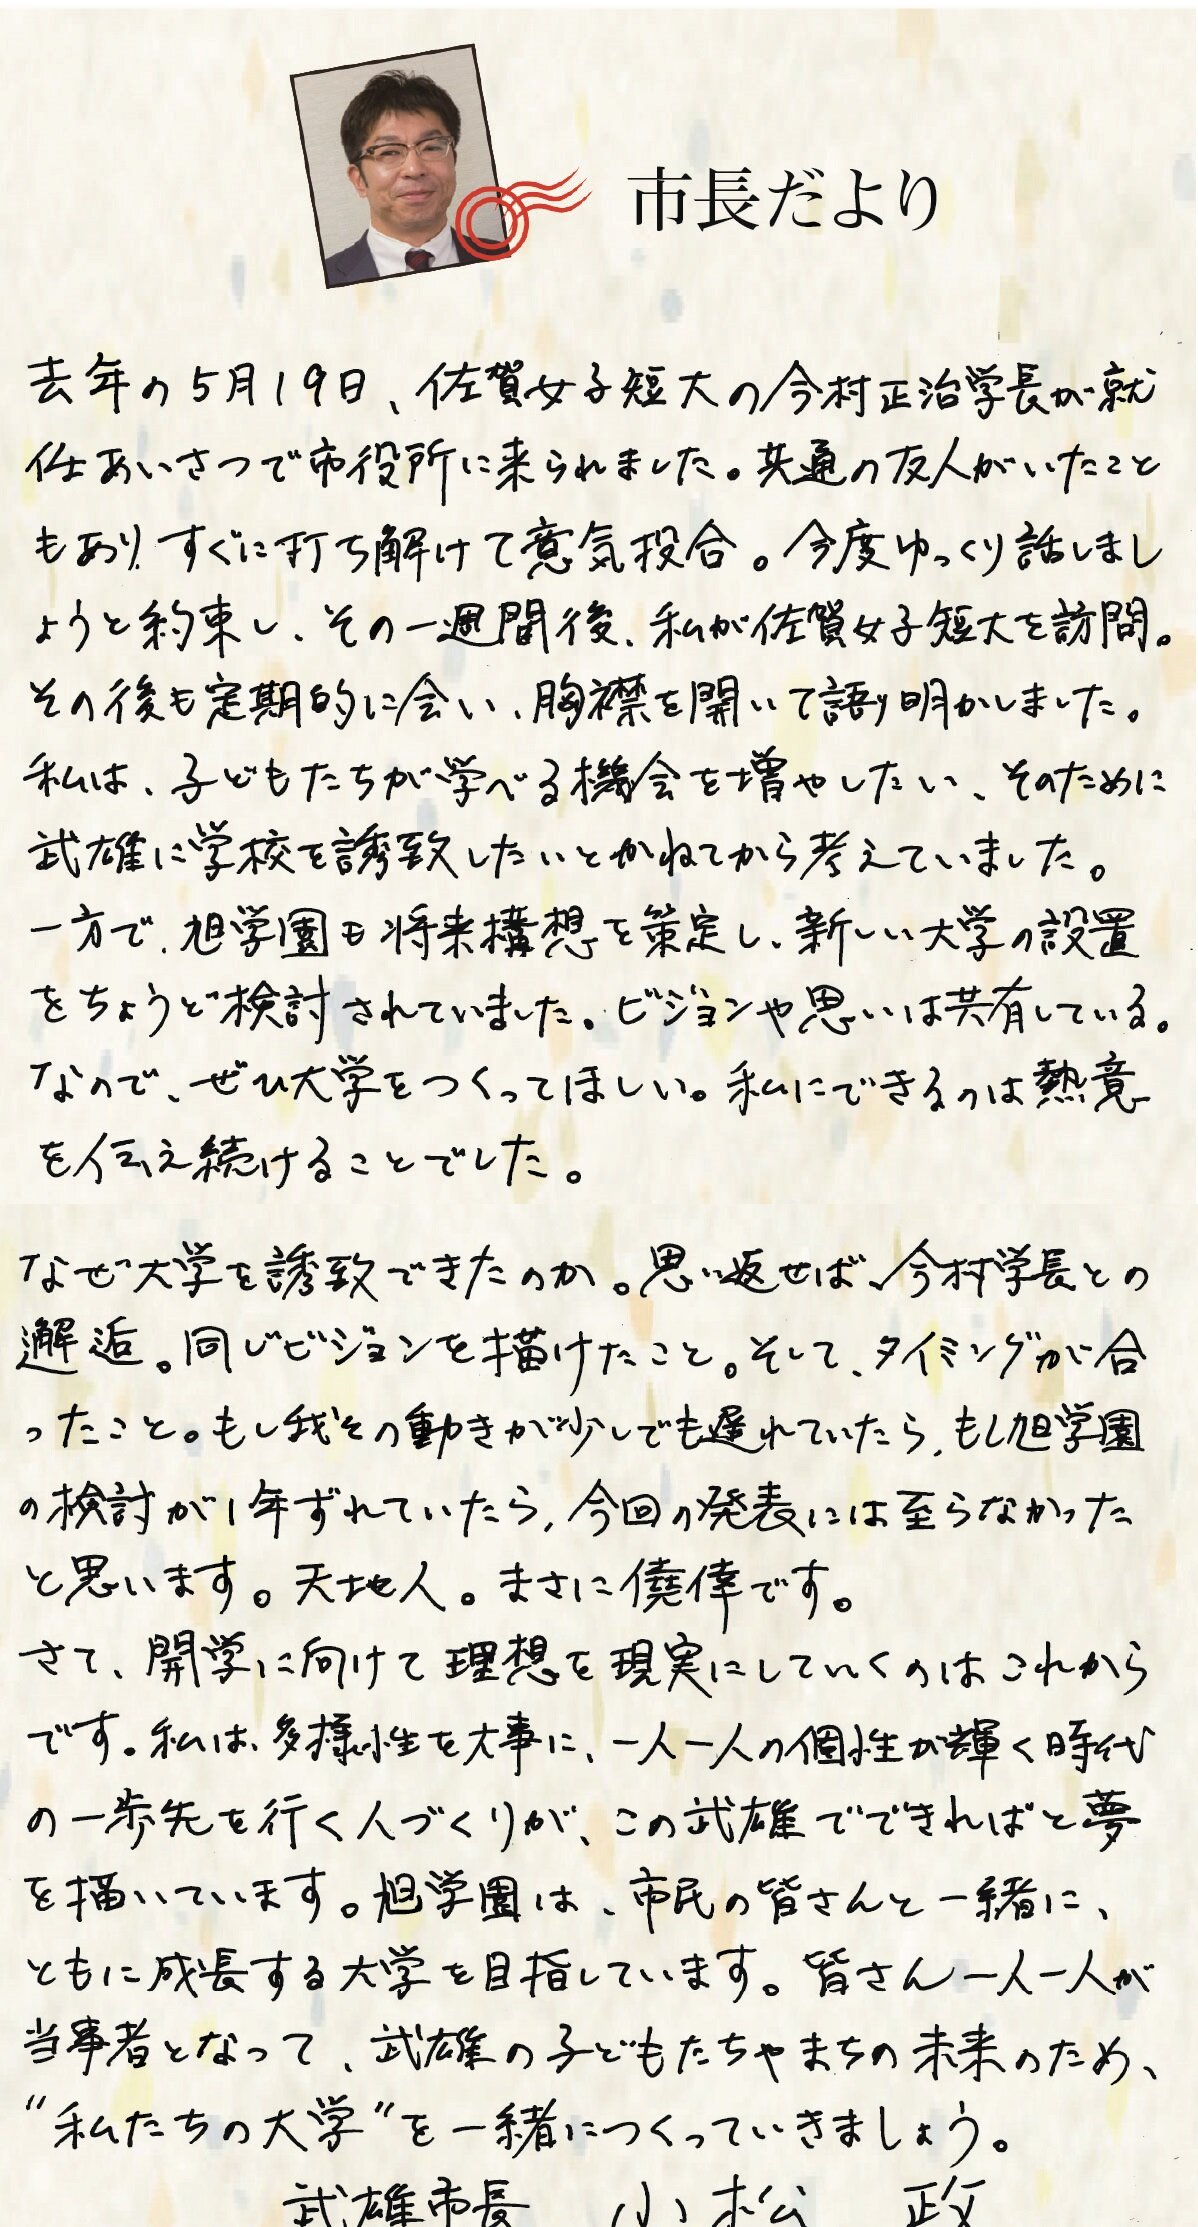 市長だより
去年の5月19日、佐賀女子短大の今村正治学長が就
任あいさつで市役所に来られました。共通の友人がいたこと
もあり、すぐに打ち解けて意気投合。今度ゆっくり話しまし
ょうと約束し、その一週間後、私が佐賀女子短大を訪問。
その後も定期的に会い、胸襟を開いて語り明かしました。
私は、子どもたちが学べる機会を増やしたい、そのために
武雄に学校を誘致したいとかねてから考えていました。
一方で、旭学園も将来構想を策定し、新しい大学の設置
をちょうど検討されていました。ビジョンや思いは共有している。
なので、ぜひ大学をつくってほしい。私にできるのは熱意
を伝え続けることでした。
なぜ大学を誘致できたのか。思い返せば、今村学長との
邂逅。同じビジョンを描けたこと。そして、タイミングが合
ったこと。もし我々の動きが少しでも遅れていたら、もし旭学園
の検討が1年ずれていたら、今回の発表には至らなかった
と思います。天地人。まさに僥倖です。
さて、開学に向けて理想を現実にしていくのはこれから
です。私は、多様性を大事に、一人一人の個性が輝く時代
の一歩先を行く人づくりが、この武雄でできればと夢
を描いています。旭学園は、市民の皆さんと一緒に、
ともに成長する大学を目指しています。皆さん一人一人が
当事者となって、武雄の子どもたちやまちの未来のため、
"私たちの大学"を一緒につくっていきましょう。
武雄市長 小松 政